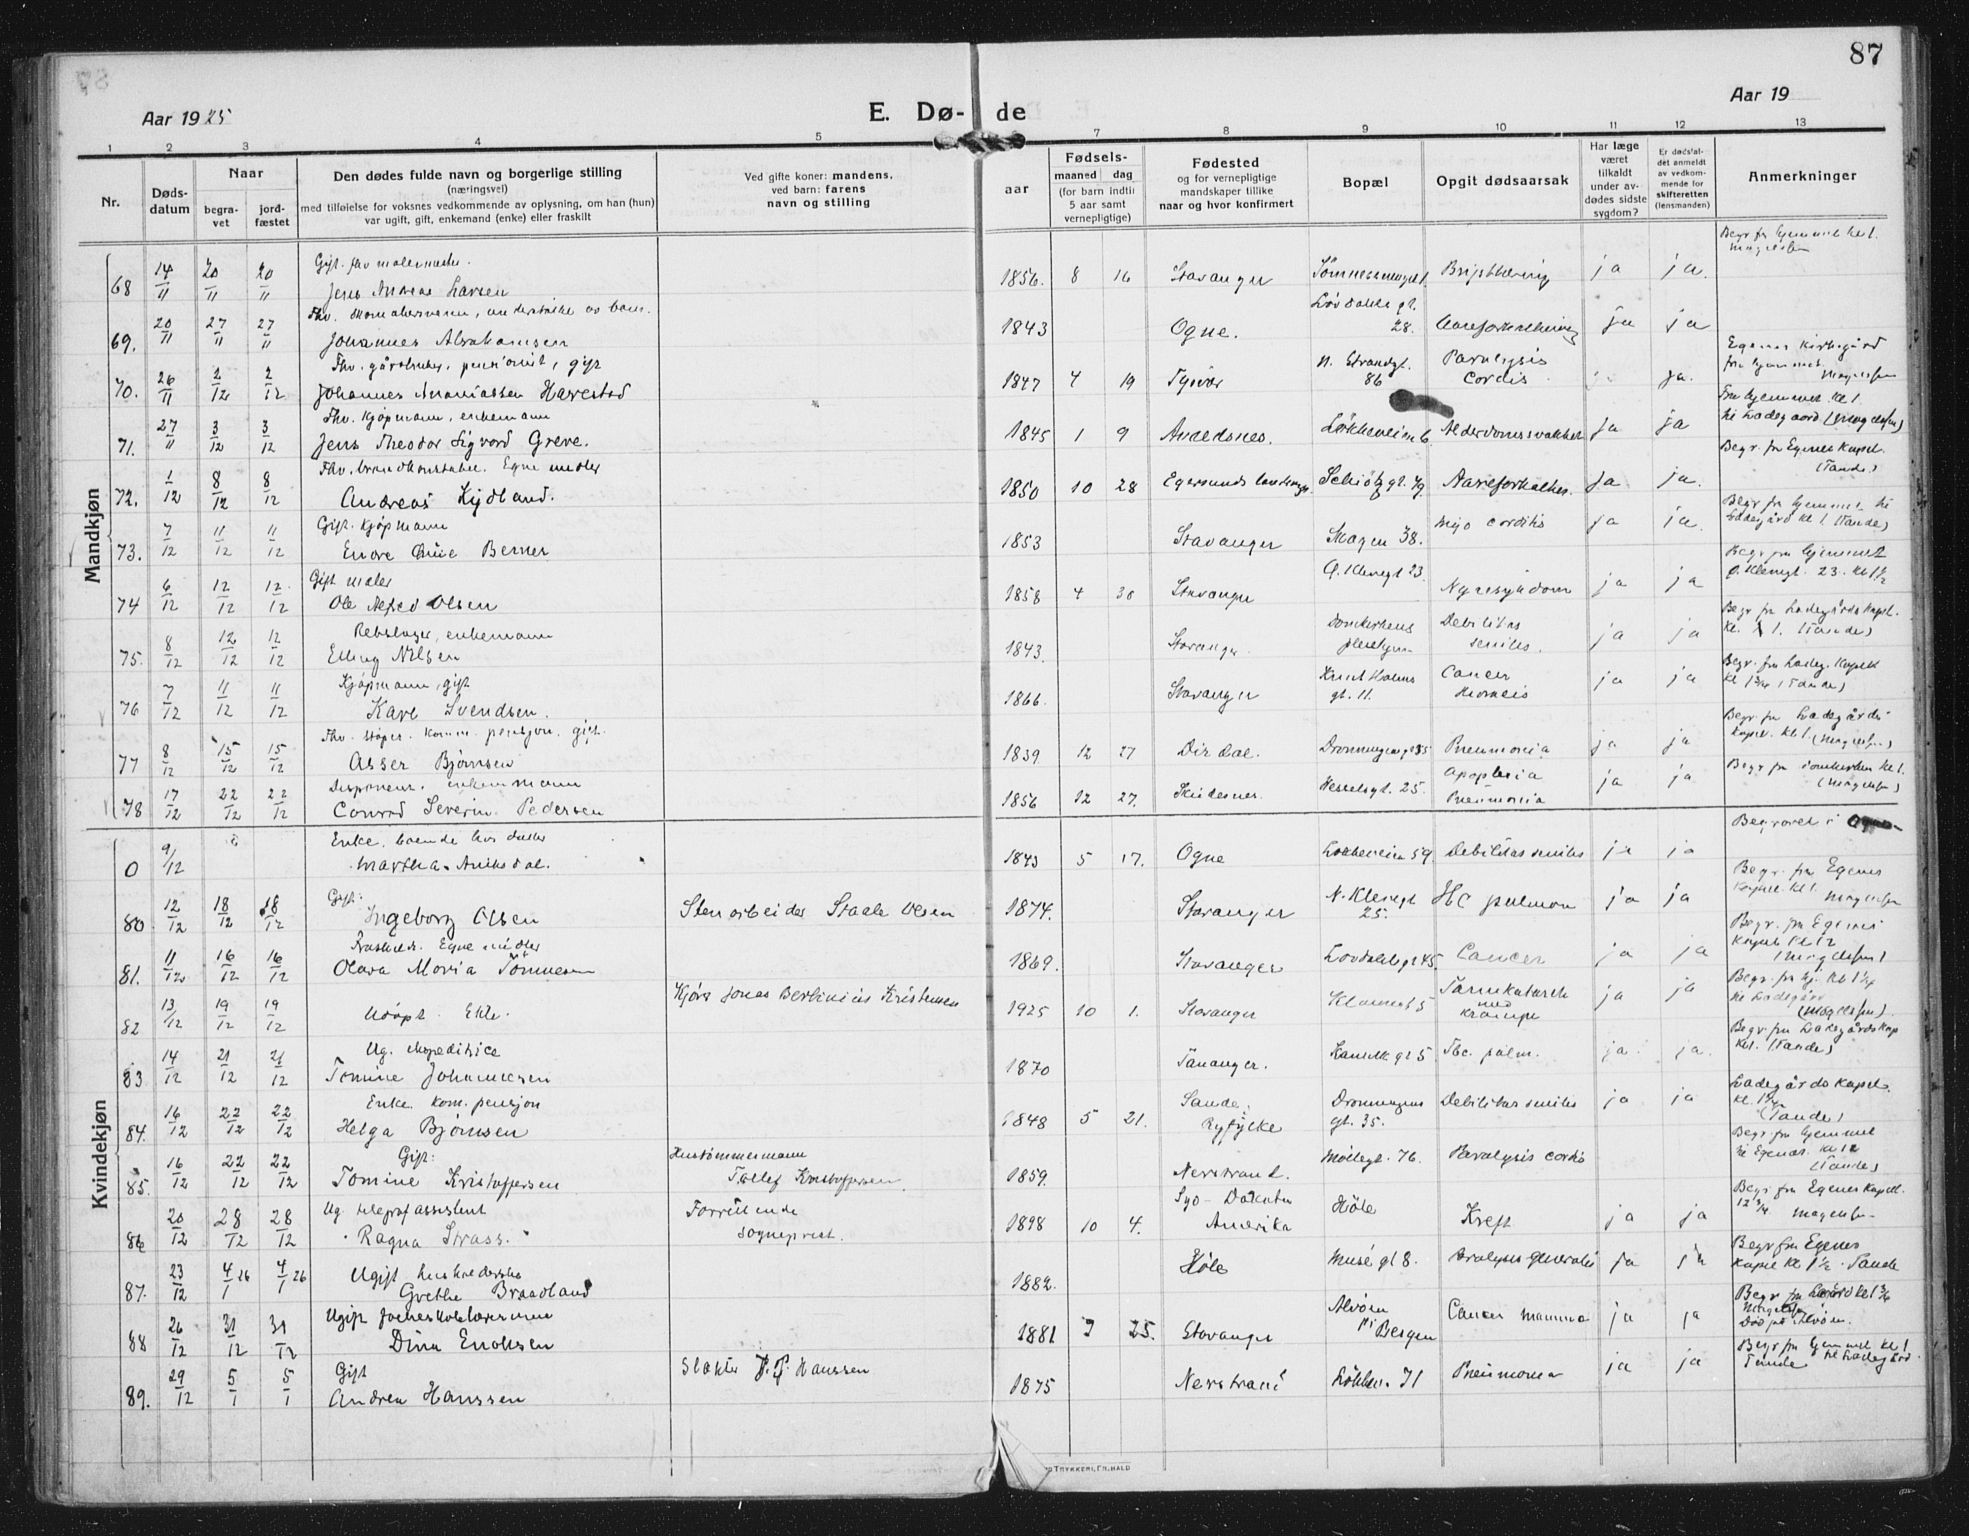 87
Aar 1925
E. Dø-de
Aar 19
1 2 3 4 5 7 8 9 10 11 12 13
Nr.
Døds-datum
Naar
begra-vet
jord-fæstet
Den dødes fulde navn og borgerlige stilling
(næringsvei)
med tilføielse for voksnes vedkommende av oplysning, om han (hun)
var ugift, gift, enkemand (enke) eller fraskilt
Ved gifte koner: mandens,
ved barn: farens
navn og stilling
aar
Fødsels-
maaned dag
(for barn indtil
5 aar samt
vernepligtige)
Fødested
og for vernepligtige
mandskaper tillike
naar og hvor konfirmert
Bopæl
Opgit dødsaarsak
Har læge
været
tilkaldt
under av-
dødes sidste
sygdom?
Er dødsfal-
det anmeldt
av vedkom-
mende for
skifteretten
(lensmanden)
Anmerkninger
Mandkjøn
Gift. fhv malermester.
68 14/11 20/11 20/11 Jens Andreas Larsen 1856. 8 16 Stavanger ja ja.
69. 20/11 27/11 27/11 Johannes Abrahamsen 1843 Ogne. Løvdahls gt. 28. Aareforkalkning ja ja
Fhv. gårdbruker, pensionist, gift
70. 26/11 2/12 2/12 Johannes Ananiassen Havestad 1847 4 19 Tysvær N. Strandgt. 86 Paralysis cordis ja.
Egenes Kirkegård fra hjemmet Magelssen
Fhv. Kjøpmann, enkemann
71. 27/11 3/12 3/12 Jens Theodor Sigvard Greve. 1845 1 9 Avaldsnes. Løkkeveien 6 Alderdomssvakhet ja ja
Fra hjemmet kl 1. til Ladegaard (Magelssen)
Fhv. brandkonstabel. Egne midler
72. 1/12 8/12 8/12 Andreas Kydland. 1850 10 28 Egersunds landsogn Schiøtz gt. 79. Aareforkalkn. ja ja.
Begr. fra Egenes Kapel. (Tande)
Gift. Kjøpmann
73. 7/12 11/12 11/12 Endre Berner 1853 Stavanger Skagen 38. Myo carditis ja ja.
Begr fra hjemmet til Ladegård kl 1. (Tande)
Gift maler
74 6/12 12/12 12/12 Ole Alfred Olsen 1858 4 30 Stavanger Ø. Klevegt 23. Nyresykdom ja ja
Begr fra hjemmet Ø. Klevegt. 23. kl 1 1/2
Rebslager, enkemann
75. 8/12 12/12 12/12 Elling Nilsen 1843. Stavanger. Domkirkens pleiehjem Debilitas senilis. ja ja
Begr fra Ladegårds Kapel. kl. 1. (Tande)
Kjøpmann, gift
76 7/12 11/12 11/12 Karl Svendsen. 1866. Stavanger Knut Holms gt. 11. Cancer ja ja
Begr. fra Ladeg. Kapell (Tande)
Fhv. støper. Komm. pensjon. gift.
77 8/12 15/12 15/12 Asser Bjørnsen 1839 12 27 Dirdal. Dronningensgt 35 Pneumonia ja ja
Begr fra Ladegårds Kapel. kl 1 (Magelssen)
Disponent. enkemann
78 17/12 22/12 22/12 Conrad Severin Pedersen 1856 12 27. Skudesnes. Hesselsgt. 25. Apoplexia Pneumonia ja ja
Begr fra domkirken kl 1. (Magelssen)
Kvindekjøn
Enke, boende hos datter
0 9/12 Martha Aniksdal. 1843 5 17. Ogne Løkkeveien 59. Debilitas senilis ja ja
Begravet i
Gift:
80. 12/12 18/12 18/12 Ingeborg Olsen Stenarbeider Staale Olsen 1874. Stavanger N. Klevegt 25. Tbc pulmon ja ja
Begr. fra Egenes Kapel. kl 1. Magelssen
Fraskilt. Egne midler
81. 11/12 16/12 16/12 Olava Maria Tønnesen 1869. Stavanger Løvdahlsgt 45. Cancer ja ja
Begr. fra Egenes Kapel kl 12 (Magelssen)
82 13/12 19/12 19/12 Udøpt. Ekte. Kjøra Jonas Bertinius Kristensen 1925 10 1. Stavanger Tarmkatarrh med krampe ja ja
til Ladegård (Magelssen).
Ug. ekspeditrice
83 14/12 21/12 21/12 Tomine Johannesen 1870 Tananger. Kanikgt 5 Tbc. pulm. ja. ja.
Begr. fra Ladegårds kap kl 1. (Tande)
Enke. kom. pensjon
84. 16/12 22/12 22/12 Helga Bjørnsen 1848 5 21. Sande, Ryfylke Dronningens gt. 35. Debilitas senilis ja ja
Ladegårds kapel. (Tande)
Gift:
85. 16/12 22/12 22/12 Tomine Kristoffersen Hustømmermann Tollef Kristoffersen. 1859. Nerstrand. Møllegt. 76. Paralysis cordis
Begr fra hjemmet til Egenæs. kl 12 (Tande)
Ug telegrafassistent
86 20/12 28/12 28/12 Ragna Strass. Forrettende sogneprest. 1898 10 4. Syd-Dakota Amerika Høle Kreft ja ja
Begr fra Egenes Kapell. 12 3/4 Magelssen
87. 23/12 4/1 26 4/1 26 Ugift husholderske Grethe Braadland 1882. Høle Musé gt 8. Paralysis generalis ja ja
Begr fra Egenes Kapel kl 1 1/2 Tande
88 26/12 31/12 31/12 Ugift Dina Enoksen 1881 25. Stavanger Alvøen pr Bergen Cancer mamma ja ja
Død på Alvøen.
Gift
89. 29/12 5/1 5/1 Andrea Hanssen Slakter Hanssen 1875 Nerstrand Løkkev. 71 Pneumonia ja ja
Begr fra hjemmet kl 1 Tande til Ladegård
TRYKKERI, FR. HALD